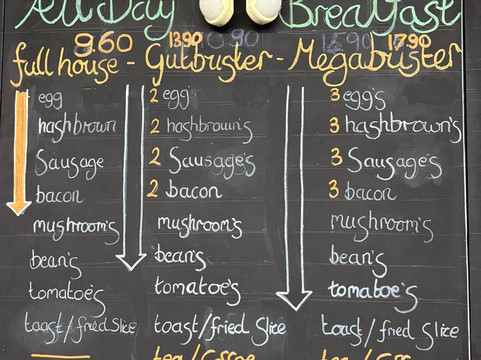 All Day Breakfast
9.60 13.90 10.90 15.90 17.90
full house - Gutbuster - Megabuster
egg 2 egg's 3 egg's
hashbrown 2 hashbrown's 3 hashbrown's
Sausage 2 Sausage's 3 Sausage's
bacon 2 bacon 3 bacon
mushroom's mushroom's mushroom's
bean's bean's bean's
tomatoe's tomatoe's tomatoe's
toast/fried slice toast/fried slice toast/fried slice
tea/coffee tea/coffee